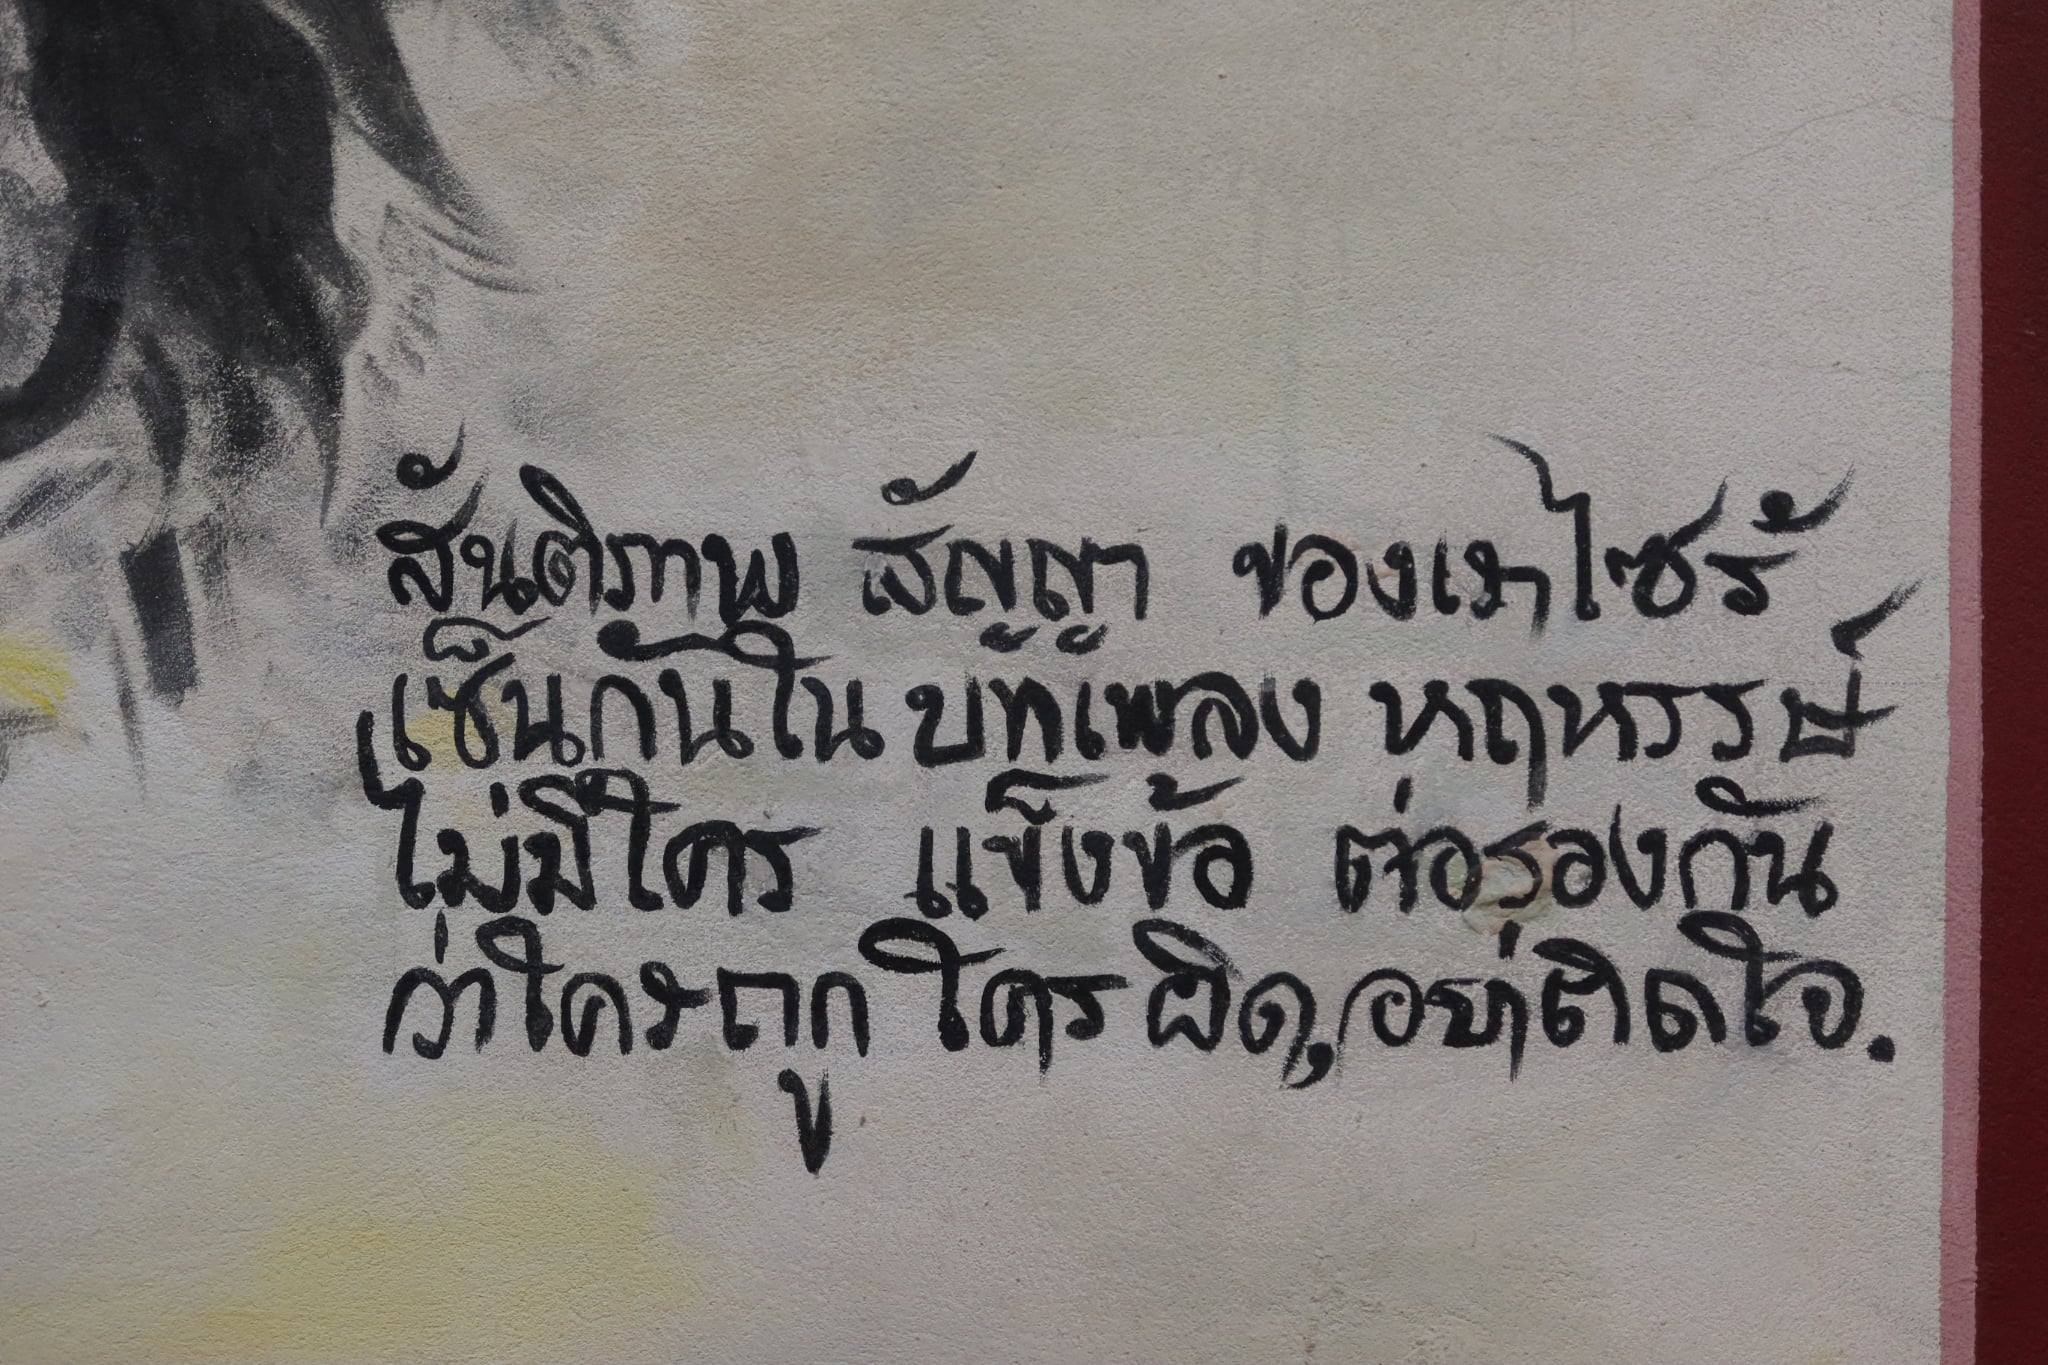 สันติภาพ สัญญา ของเาไซร้
เซ็นกันใน บทเพลง หฤหรรษ์
ไม่มีใคร แข็งข้อ ต่อรองกัน
ว่าใครจะถูก ใคร ผิด, อย่าติดใจ.